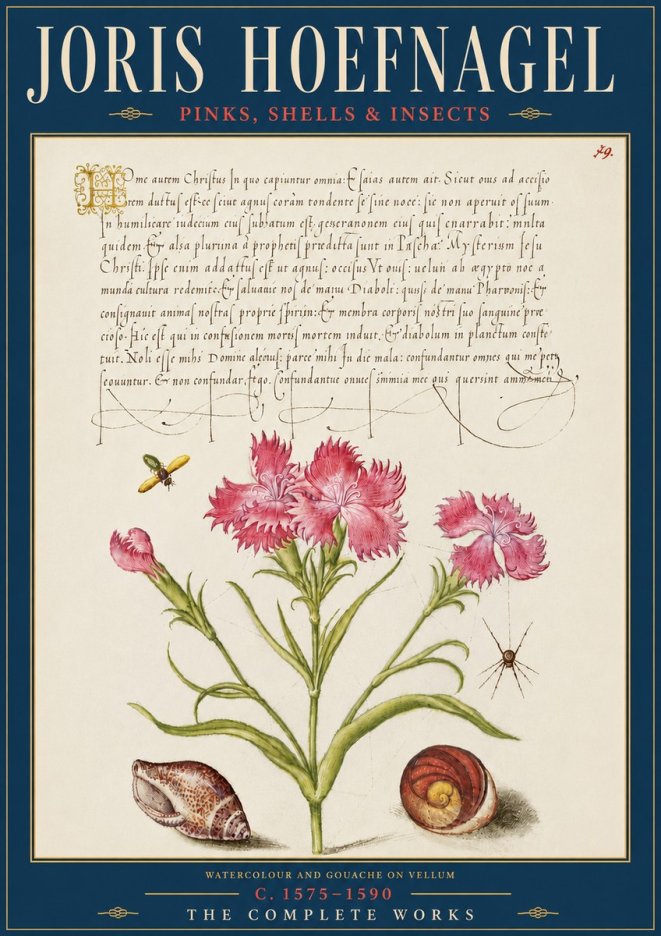 JORIS HOEFNAGEL
PINKS, SHELLS & INSECTS
79.
Home autem Christus In quo capiuntur omnia: Esaias autem ait. Sicut ouis ad
est sicut agnus coram tondente se sine noce: sic non aperuit os suum.
In humiliare iudicium eius est. generanonem eius quis enarrabit: mnlta
quidem. Et alsa plurina à prophetis sunt in Pascha. Mysterism Jesu
Christi. Ipse enim est ut agnus: occisus Vt ouis: uelun ab ægypto noc a
munda cultura redemite: Et saluanic nos de manu Diaboli: quisi de manu Et
consignauit animas nostras proprie Et membra corporis nostri suo sanguine pre
cioso. Hic est qui in mortis mortem induit. Et diabolum in planctum conste
tuit. Noli esse mihi Domine parce mihi In die mala: confundantur omnes qui me
Et non confundar, ego. mee quersint
WATERCOLOUR AND GOUACHE ON VELLUM
C. 1575–1590
THE COMPLETE WORKS